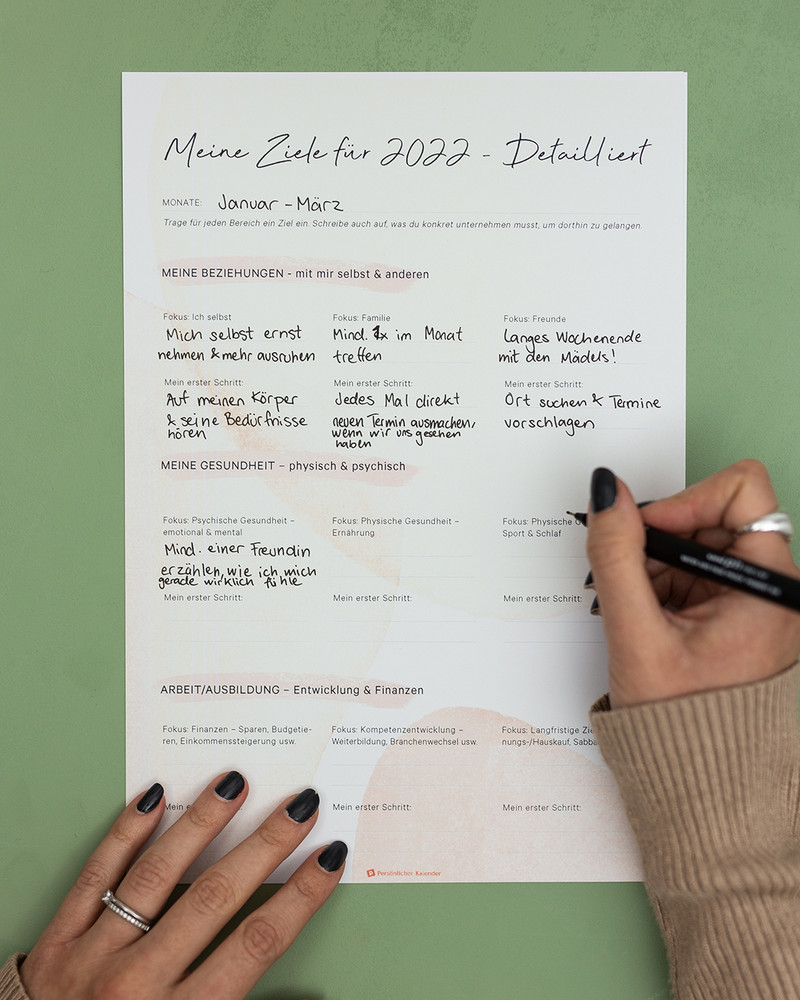 Meine Ziele für 2022 - Detailliert
MONATE: Januar - März
Trage für jeden Bereich ein Ziel ein. Schreibe auch auf, was du konkret unternehmen musst, um dorthin zu gelangen.
MEINE BEZIEHUNGEN - mit mir selbst & anderen
Fokus: Ich selbst
Mich selbst ernst
nehmen & mehr ausruhen
Mein erster Schritt:
Auf meinen Körper
& seine Bedürfnisse
hören
Fokus: Familie
Mind. 1x im Monat
treffen
Mein erster Schritt:
Jedes Mal direkt
neuen Termin ausmachen,
wenn wir uns gesehen
haben
Fokus: Freunde
Langes Wochenende
mit den Mädels!
Mein erster Schritt:
Ort suchen & Termine
vorschlagen
MEINE GESUNDHEIT – physisch & psychisch
Fokus: Psychische Gesundheit –
emotional & mental
Mind. einer Freundin
erzählen, wie ich mich
gerade wirklich fühle
Mein erster Schritt:
Fokus: Physische Gesundheit –
Ernährung
Mein erster Schritt:
Fokus: Physische
Sport & Schlaf
Mein erster Schritt:
ARBEIT/AUSBILDUNG – Entwicklung & Finanzen
Fokus: Finanzen – Sparen, Budgetie-
ren, Einkommenssteigerung usw.
Mein
Fokus: Kompetenzentwicklung –
Weiterbildung, Branchenwechsel usw.
Mein erster Schritt:
Fokus: Langfristige
nungs-/Hauskauf,
Mein erster Schritt:
Persönlicher Kalender